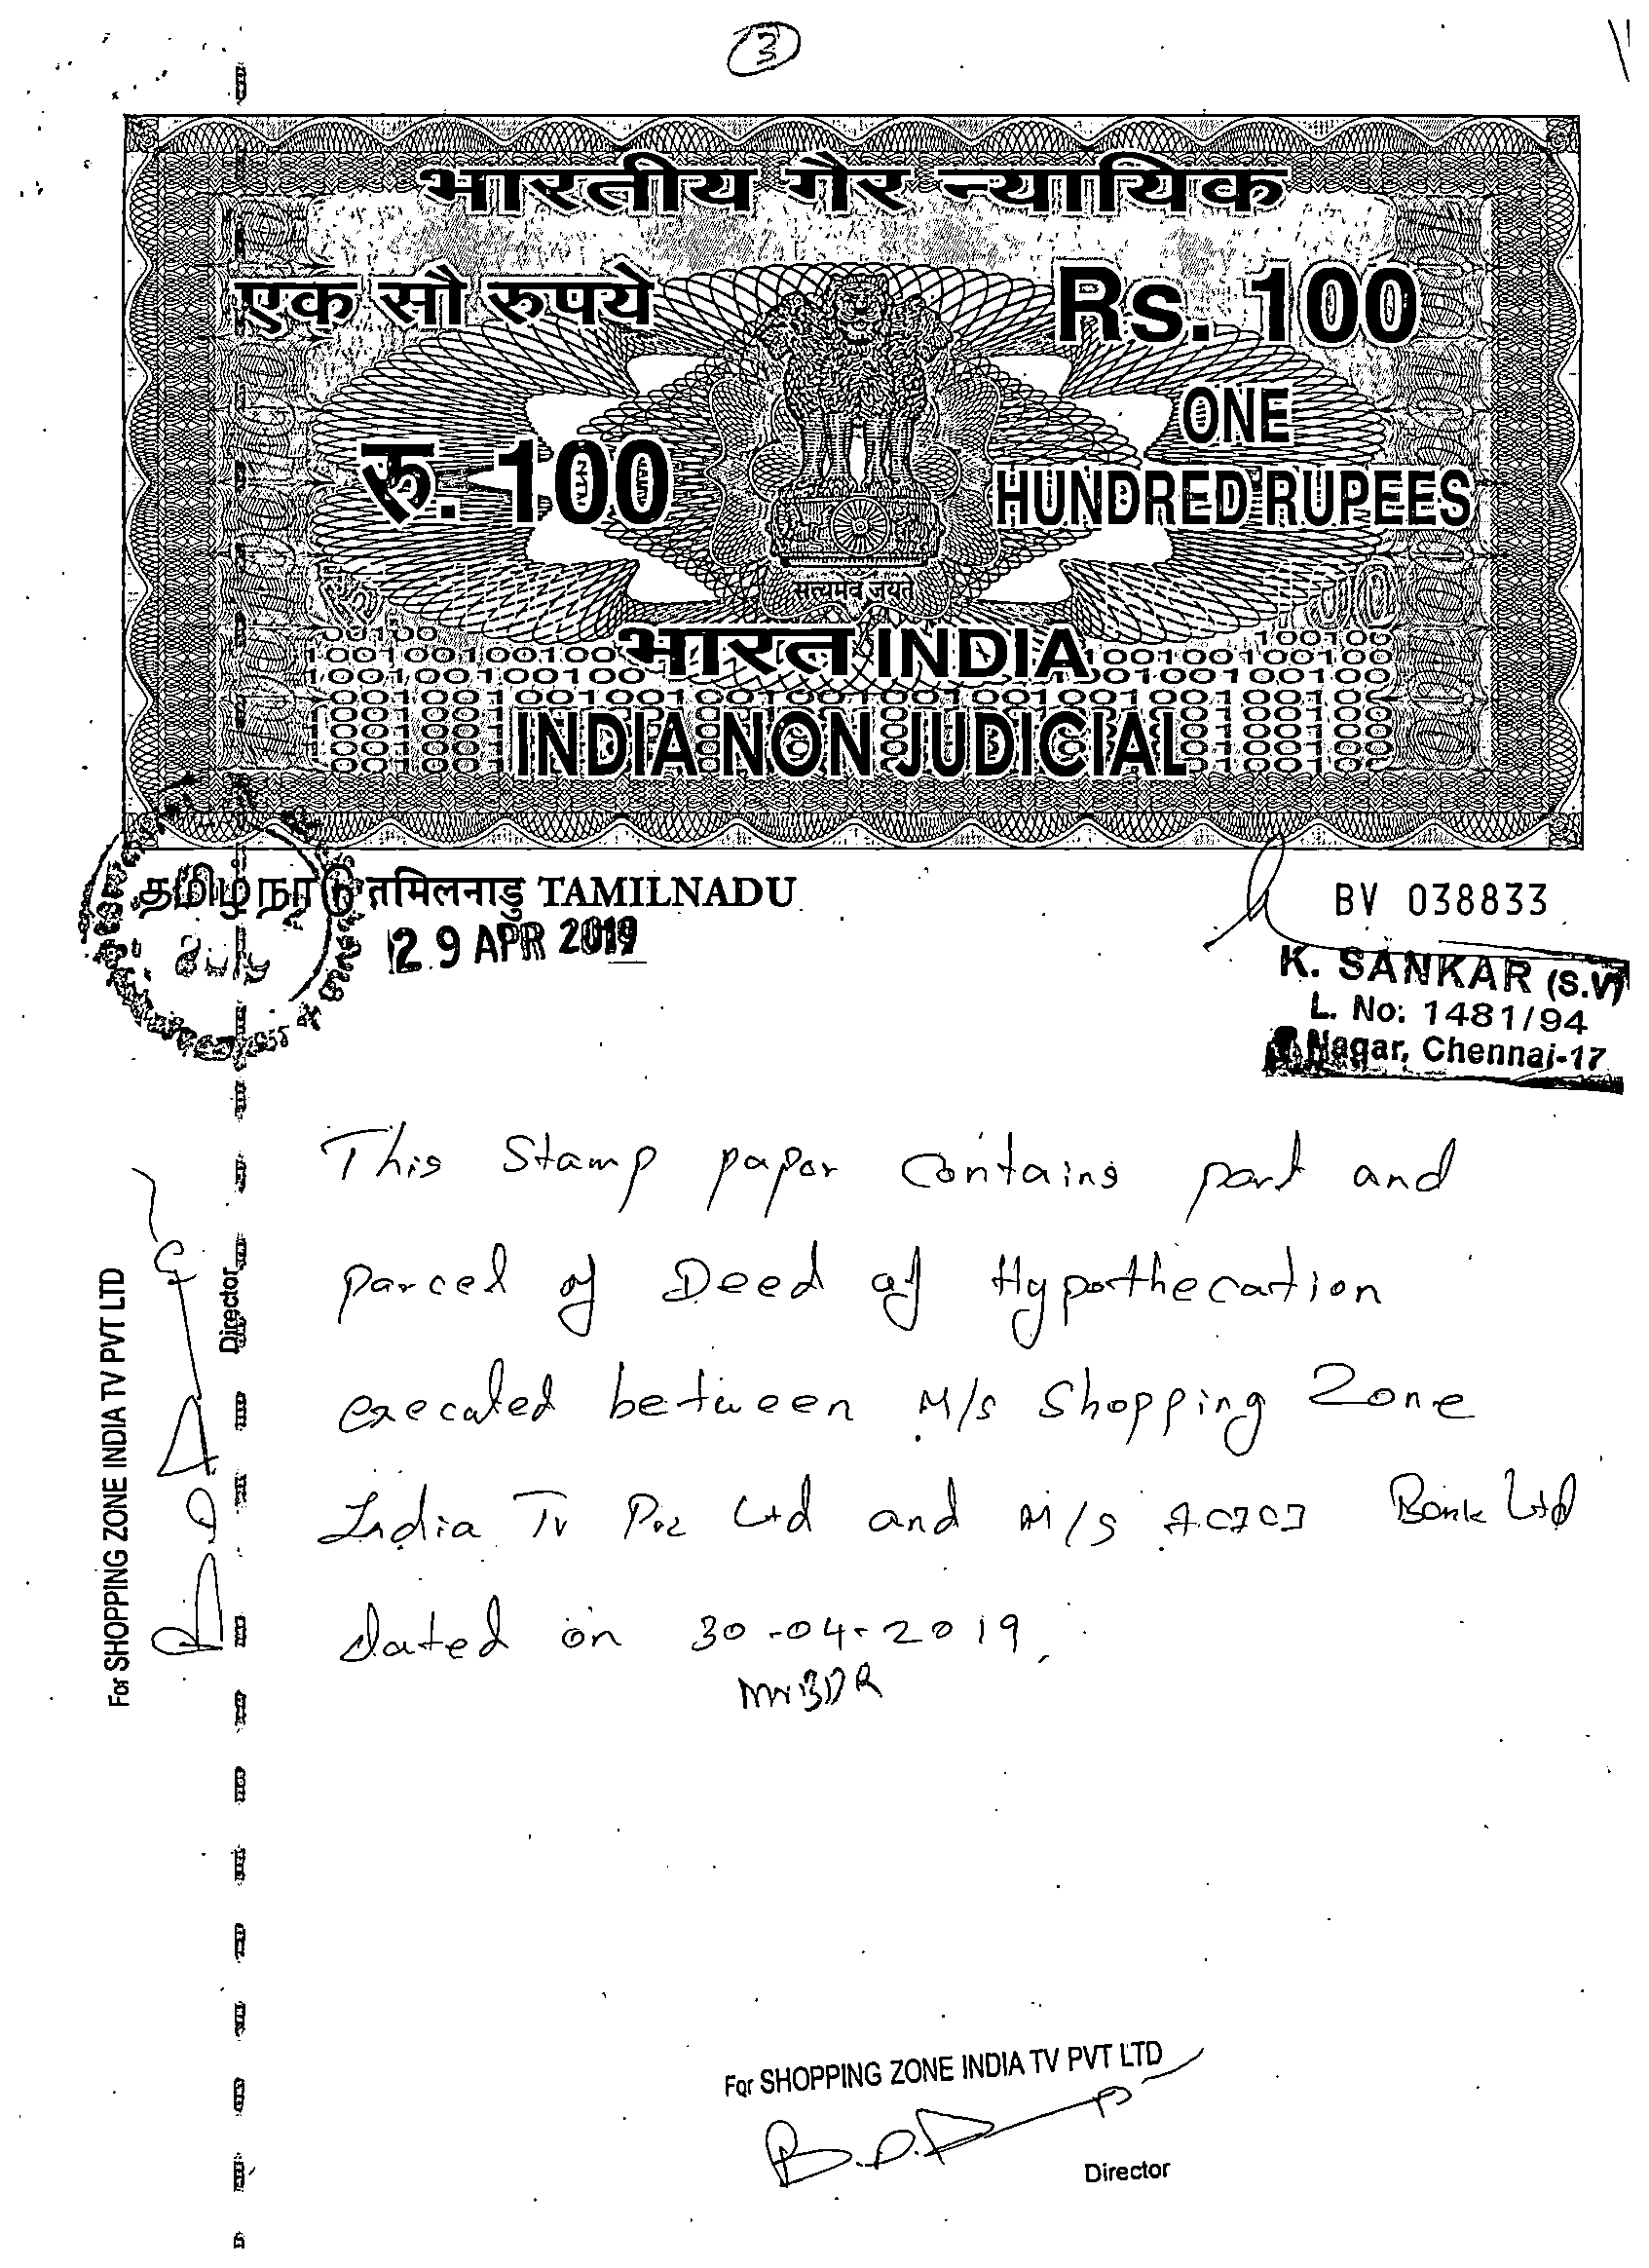 3
भारतीय गैर न्यायिक
एक सौ रुपये
Rs. 100
रु. 100
ONE
HUNDRED RUPEES
सत्यमेव जयते
भारत INDIA
INDIA NON JUDICIAL
தமிழ்நாடு तमिलनाडु TAMILNADU
BV 038833
29 APR 2019
K. SANKAR (S.V)
L. No: 1481/94
Nagar, Chennai-17
This Stamp paper Contains part and
parcel of Deed of Hypothecation
executed between M/s Shopping Zone
India Tv Pvt Ltd and M/s ICICI Bank Ltd
dated on 30-04-2019.
For SHOPPING ZONE INDIA TV PVT LTD
Director
For SHOPPING ZONE INDIA TV PVT LTD
Director